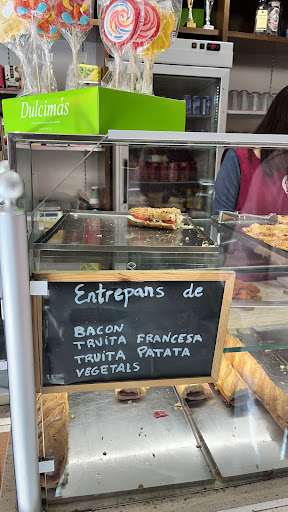 Dulcimás
Entrepans de
BACON
TRUITA FRANCESA
TRUITA PATATA
VEGETALS